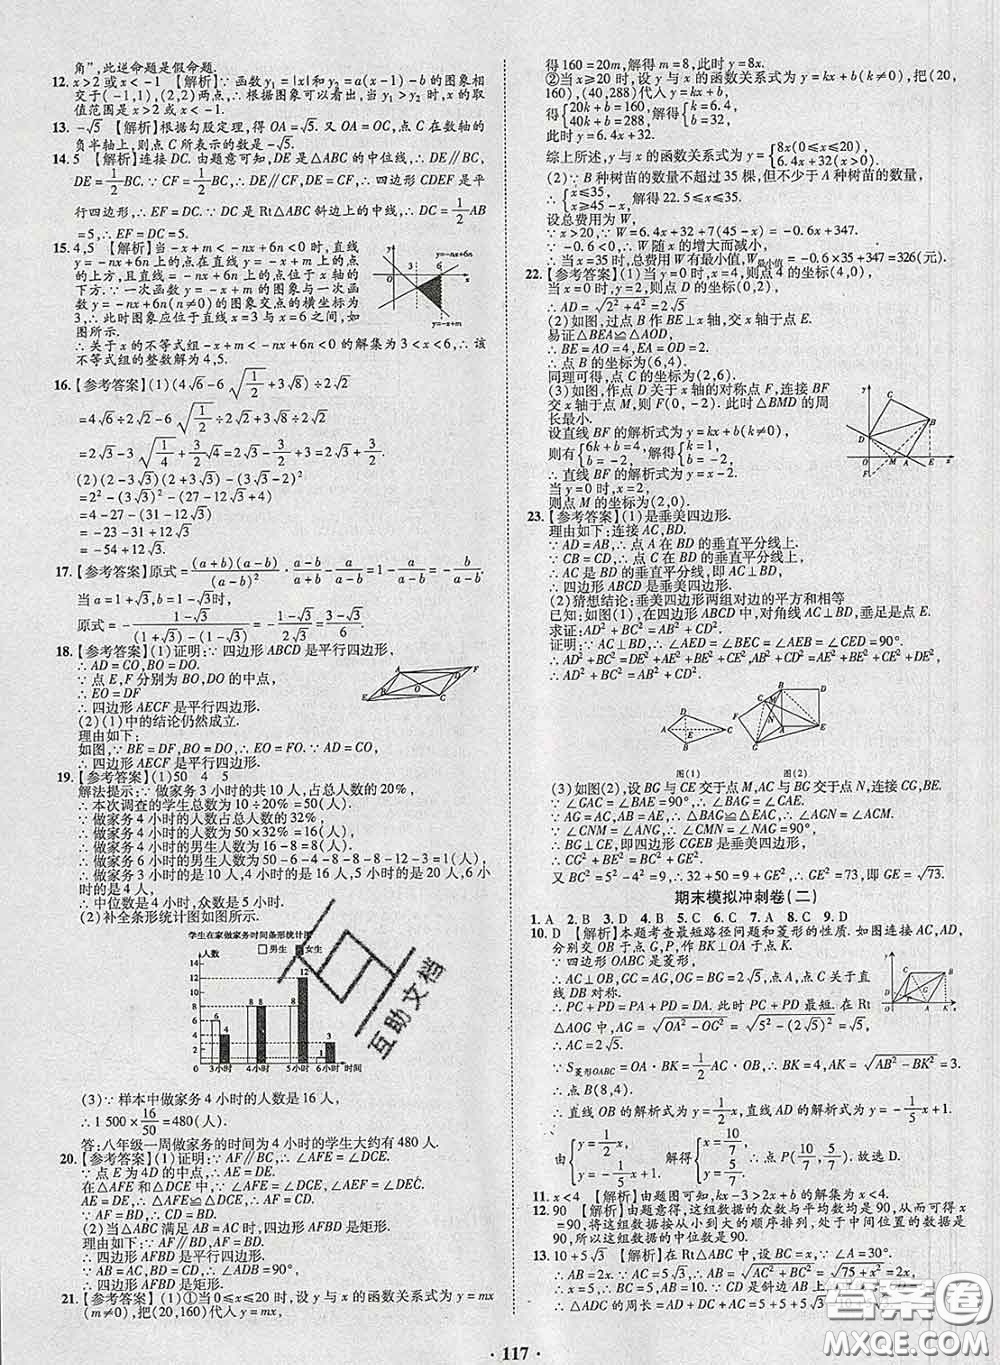 角”,此逆命题是假命题.
12. x>2 或 x<-1 【解析】∵ 函数 y₁=|x|和 y₂=a(x-1)-b 的图象相
交于(-1,1),(2,2)两点,∴ 根据图象可以看出,当 y₁>y₂ 时,x 的取
值范围是 x>2 或 x<-1.
13. -√5 【解析】根据勾股定理,得 OA=√5. 又∵ OA=OC,点 C 在数轴的
负半轴上,则点 C 所表示的数是-√5.
14. 5 【解析】连接 DC. 由题意可知,DE 是△ABC 的中位线,∴ DE∥BC,
DE=1/2BC. ∵ CF=1/2BC,∴ DE∥CF,DE=CF,∴ 四边形 CDEF 是平
行四边形,∴ EF=DC. ∵ DC 是 Rt△ABC 斜边上的中线,∴ DC=1/2AB
=5,∴ EF=DC=5.
15. 4,5 【解析】当-x+m<-nx+6n<0 时,直线
y=-nx+6n 上的点在直线 y=-x+m 上的点
的上方,且直线 y=-nx+6n 位于 x 轴的
下方. ∵ 一次函数 y=-x+m 的图象与一次函
数 y=-nx+6n(n≠0)的图象交点的横坐标为
3,∴ 此时图象应位于直线 x=3 与 x=6 之间,如
图所示.
∴ 关于 x 的不等式组-x+m<-nx+6n<0 的解集为 3<x<6,∴ 该
不等式组的整数解为 4,5.
3 6 y=-nx+6n x y=-x+m
16. 【参考答案】(1)(4√6-6√(1/2)+3√8)÷2√2
=4√6÷2√2-6√(1/2)÷2√2+3√8÷2√2
=2√3-3√(1/4)+√(4/4)... 
(2)(2-√3)(2+√3)-(2√3-√3)²
=2²-(√3)²-(31-12√3)
=4-27-(31-12√3)
=-23-31+12√3
=-54+12√3.
17. 【参考答案】原式=(a+b)(a-b)/(a-b)²
当 a=1+√3,b=1-√3时,
18. 【参考答案】(1)证明:∵ 四边形 ABCD 是平行四边形,
∴ AO=CO,BO=DO.
∵ 点 E,F 分别为 BO,DO 的中点,
∴ EO=DF
∴ 四边形 AECF 是平行四边形.
(2)(1)中的结论仍然成立.
理由如下:
如图,∵ BE=DF,BO=DO,∴ EO=FO.
∴ 四边形 AECF 是平行四边形.
19. 【参考答案】(1)50 4 5
解法提示:∵ 做家务 3 小时的共 10 人,占总人数的 20%,
∴ 本次调查的学生总数为 10÷20%=50(人).
∵ 做家务 4 小时的人数占总人数的 32%,
∴ 做家务 4 小时的人数为 50×32%=16(人).
∴ 做家务 4 小时的男生人数为 16-8=8(人).
∴ 做家务 6 小时的男生人数为 50-6-4-8-8-8-12-3=1(人).
∵ 做家务 3 小时的是 10 人,4 小时的是 16 人,5 小时的是 20 人,6 小
时的是 4 人,
∴ 中位数是 4 小时,众数是 5 小时.
(2)补全条形统计图如图所示.
学生在家做家务时间条形统计图
人数 男生 女生
14 12 10 8 6 4 2 0
6 4 8 8 8 12 1 3
3小时 4小时 5小时 6小时 时间
(3)∵ 样本中做家务 4 小时的人数是 16 人,
∴ 1 500×16/50=480(人).
答:八年级一周做家务的时间为 4 小时的学生大约有 480 人.
20. 【参考答案】(1)证明:∵ AF∥BC,∴ ∠AFE=∠DCE.
∵ 点 E 为 AD 的中点,∴ AE=DE.
在△AFE 和△DCE 中,∠AFE=∠DCE,∠AEF=∠DEC
∵ AF=BD,∴ BD=CD.
(2)当△ABC 满足 AB=AC 时,四边形 AFBD 是矩形.
理由如下:∵ AF∥BD,AF=BD,
∴ 四边形 AFBD 是平行四边形.
∵ AB=AC,BD=CD,∴ ∠ADB=90°
∴ 四边形 AFBD 是矩形.
21. 【参考答案】(1)①当 0≤x≤20 时,设 y 与 x 的函数关系式为 y=mx
(m≠0),把(20,160)代入 y=mx,
得 160=20m,解得 m=8,此时 y=8x.
②当 x≥20 时,设 y 与 x 的函数关系式为 y=kx+b(k≠0),把(20,
160),(40,288)代入 y=kx+b,
得{20k+b=160, 40k+b=288. 解得{k=6.4, b=32.
此时 y=6.4x+32.
综上所述,y 与 x 的函数关系式为 y={8x(0≤x≤20) 6.4x+32(x>20).
(2)∵ B 种树苗的数量不超过 35 棵,但不少于 A 种树苗的数量,
∴ {x≤35, x≥45-x. 解得 22.5≤x≤35.
设总费用为 W,
∵ x>20,∴ W=6.4x+32+7(45-x)=-0.6x+347.
∵ -0.6<0,∴ W 随 x 的增大而减小,
∴ 当 x=35 时,总费用 W 有最小值,W最小值=-0.6×35+347=326(元).
22. 【参考答案】(1)当 y=0 时,x=4,则点 A 的坐标(4,0),
当 x=0 时,y=2,则点 D 的坐标(0,2),
∴ AD=√(2²+4²)=2√5
(2)如图,过点 B 作 BE⊥x 轴,交 x 轴于点 E.
易证△BEA≌△AOD,
∴ BE=AO=4,AE=DO=2.
∴ 点 B 的坐标为(6,4).
同理可得,点 C 的坐标为(2,6).
(3)如图,作点 D 关于 x 轴的对称点 F,连接 BF
交 x 轴于点 M,则 F(0,-2). 此时△BMD 的周
长最小.
设直线 BF 的解析式为 y=kx+b(k≠0).
则有{6k+b=4, b=-2. 解得{k=1, b=-2.
∴ 直线 BF 的解析式为 y=x-2.
当 y=0 时,x=2,
∴ 点 M 的坐标为(2,0).
y C B D O M A E x F
23. 【参考答案】(1)是垂美四边形.
理由如下:连接 AC,BD.
∵ AD=AB,∴ 点 A 在 BD 的垂直平分线上.
∵ CB=CD,∴ 点 C 在 BD 的垂直平分线上.
∴ AC 是 BD 的垂直平分线,∴ AC⊥BD.
∴ 四边形 ABCD 是垂美四边形.
(2)猜想结论:垂美四边形两组对边的平方和相等
已知:如图(1),在四边形 ABCD 中,对角线 AC⊥BD,垂足是点 E.
求证:AD²+BC²=AB²+CD².
证明:∵ AC⊥BD,∴ ∠AED=∠BEC=∠AEB=∠CED=90°
∴ AD²+BC²=DE²+AE²+BE²+CE²,
AB²+CD²=AE²+BE²+DE²+CE²,
∴ AD²+BC²=AB²+CD².
图(1) 图(2)
(3)如图(2),设 BG 与 CE 交于点 M,AC 与 BG 交于点 N,连接 CG,BE.
∵ ∠GAC=∠BAE=90°,∴ ∠GAB=∠CAE.
∵ AG=AC,AB=AE,∴ △BAG≌△EAC,∴ ∠AGN=∠ACM.
∵ ∠CNM=∠ANG,∴ ∠CMN=∠NAG=90°,
∴ BG⊥CE,即四边形 CGEB 是垂美四边形.
∴ CG²+BE²=BC²+GE².
又 BC²=BE²,∴ 32+50=9+GE²,∴ GE²=73,即 GE=√73.
期末模拟冲刺卷(二)
1. A 2. B 3. D 4. C 5. C 6. C 7. A 8. C 9. D
10. D 【解析】本题考查最短路径问题和菱形的性质. 如图连接 AC,AD,
分别交 OB 于点 G,P,作 BK⊥OA 于点 K.
∵ 四边形 OABC 是菱形,
∴ AC⊥OB,GC=AG,OG=BG=2√5,点 A,C 关于直
线 OB 对称.
∴ PC+PD=PA+PD=DA. 此时 PC+PD 最短. 在 Rt
△AOG 中,AG=√(OA²-OG²)=√(5²-(2√5)²)=√5,
∴ AC=2√5.
∵ S菱形OABC=OA·BK=1/2AC·OB,∴ BK=4,AK=√(AB²-BK²)=3.
∴ 点 B(8,4).
∴ 直线 OB 的解析式为 y=1/2x,直线 AD 的解析式为 y=-1/5x+1.
由{y=1/2x, y=-1/5x+1. 解得{x=10/7, y=5/7. ∴ 点 P(10/7,5/7). 故选 D.
11. x<4 【解析】由图可知,kx-3>2x+b 的解集为 x<4.
12. 90 【解析】由题意得,这组数据的众数与平均数均为 90,可求得 x
=90,将这组数据按从小到大的顺序排列,处于中间位置的数是
90,所以这组数据的中位数是 90.
13. 10+5√3 【解析】在 Rt△ABC 中,设 BC=x,∵ ∠A=30°.
∴ AB=2BC=2x,∴ AB=√(AC²+BC²)=√(75+x²)=2x,
∴ x=5,∴ AB=10
∴ △ADC 的周长=AD+DC+AC=
· 117 ·
互助文档
答案圈
MXQE.COM